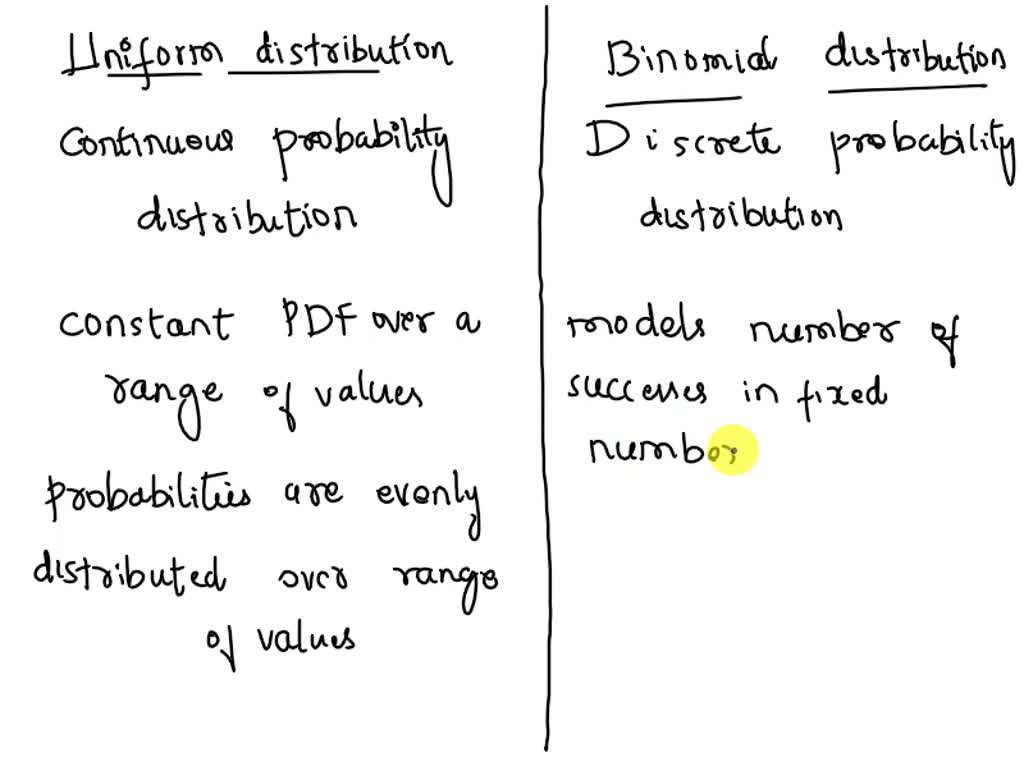 Uniform distribution
Continuous probability
distribution
constant PDF over a
range of values
probabilities are evenly
distributed over range
of values
Binomial distribution
Discrete probability
distribution
models number of
successes in fixed
number